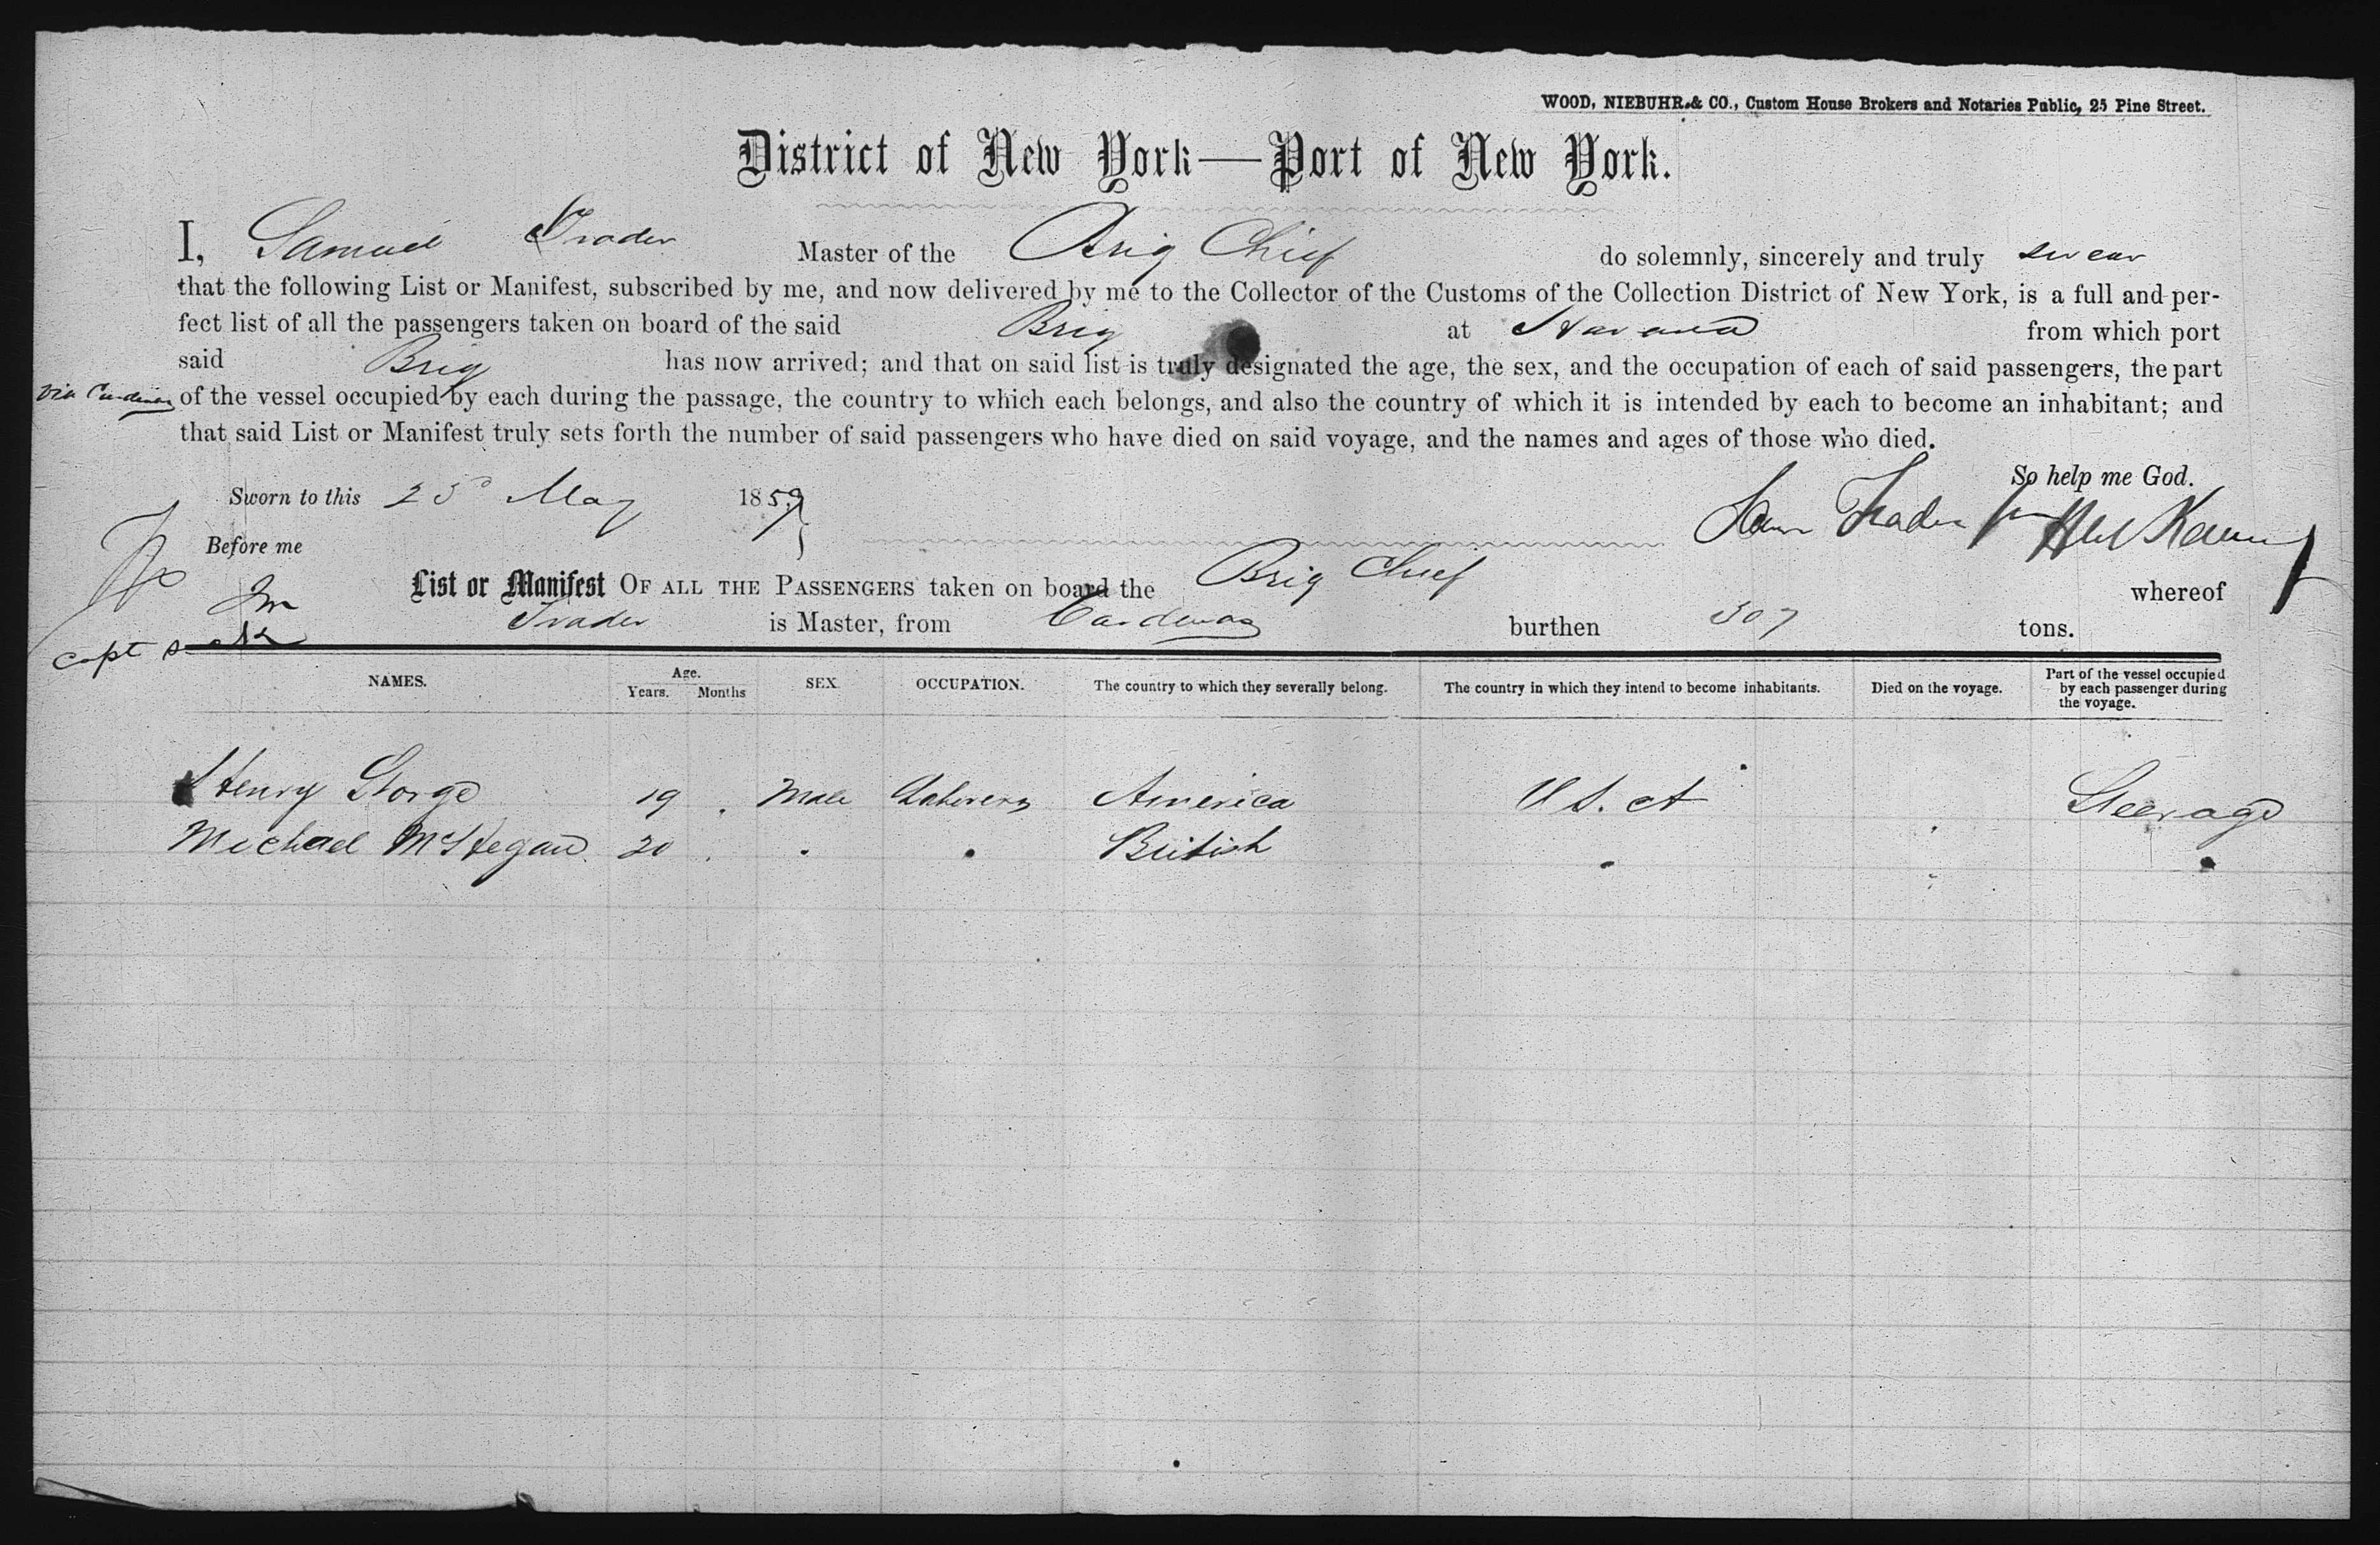 WOOD, NIEBUHR & CO., Custom House Brokers and Notaries Public, 25 Pine Street.
District of New York—Port of New York.
I, Samuel Trader Master of the Brig Chief do solemnly, sincerely and truly swear
that the following List or Manifest, subscribed by me, and now delivered by me to the Collector of the Customs of the Collection District of New York, is a full and per-
fect list of all the passengers taken on board of the said Brig at Havana from which port
said Brig has now arrived; and that on said list is truly designated the age, the sex, and the occupation of each of said passengers, the part
via Cardenas of the vessel occupied by each during the passage, the country to which each belongs, and also the country of which it is intended by each to become an inhabitant; and
that said List or Manifest truly sets forth the number of said passengers who have died on said voyage, and the names and ages of those who died.
So help me God.
Sworn to this 25 May 1859
Sam Trader
Before me
List or Manifest OF ALL THE PASSENGERS taken on board the Brig Chief whereof
Trader is Master, from Cardenas burthen 307 tons.
Capt
NAMES. Age. Years. Months SEX. OCCUPATION. The country to which they severally belong. The country in which they intend to become inhabitants. Died on the voyage. Part of the vessel occupied by each passenger during the voyage.
Henry Gorge 19 . Male Laborers America U S. A Steerage
Michael McHegan. 20 . . . British